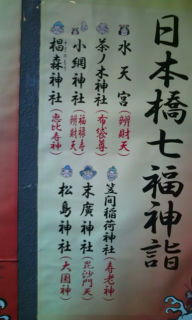 日本橋七福神詣
水天宮(辨財天)
茶ノ木神社(布袋尊)
小網神社(福禄寿 辨財天)
椙森神社(恵比寿神)
笠間稲荷神社(寿老神)
末廣神社(毘沙門天)
松島神社(大国神)